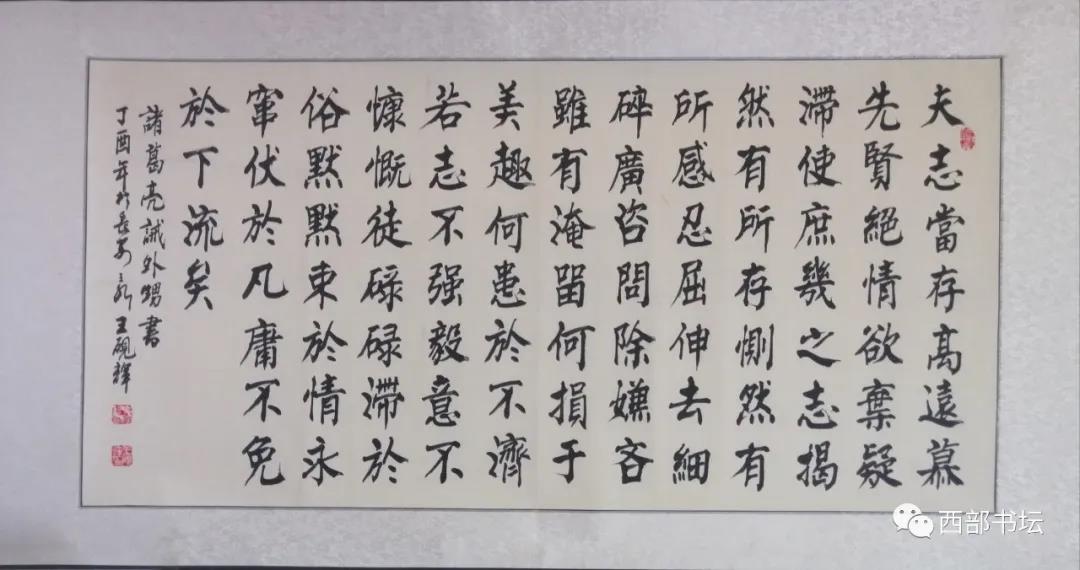 夫志當存高遠慕
先賢絕情欲棄疑
滯使庶幾之志揭
然有所存惻然有
所感忍屈伸去細
碎廣咨問除嫌吝
雖有淹留何損于
美趣何患於不濟
若志不强毅意不
慷慨徒碌碌滯於
俗默默束於情永
竄伏於凡庸不免
於下流矣
諸葛亮誡外甥書
丁酉年於長安王硯輝
西部书坛